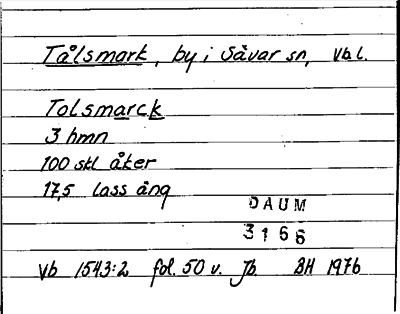 Tålsmark, by i Sävar sn, Vbl.
Tolsmarck
3 hmn
100 skl åker
17,5 lass äng
DAUM
3166
Vb 1543:2 fol. 50 v. Jb. BH 1976